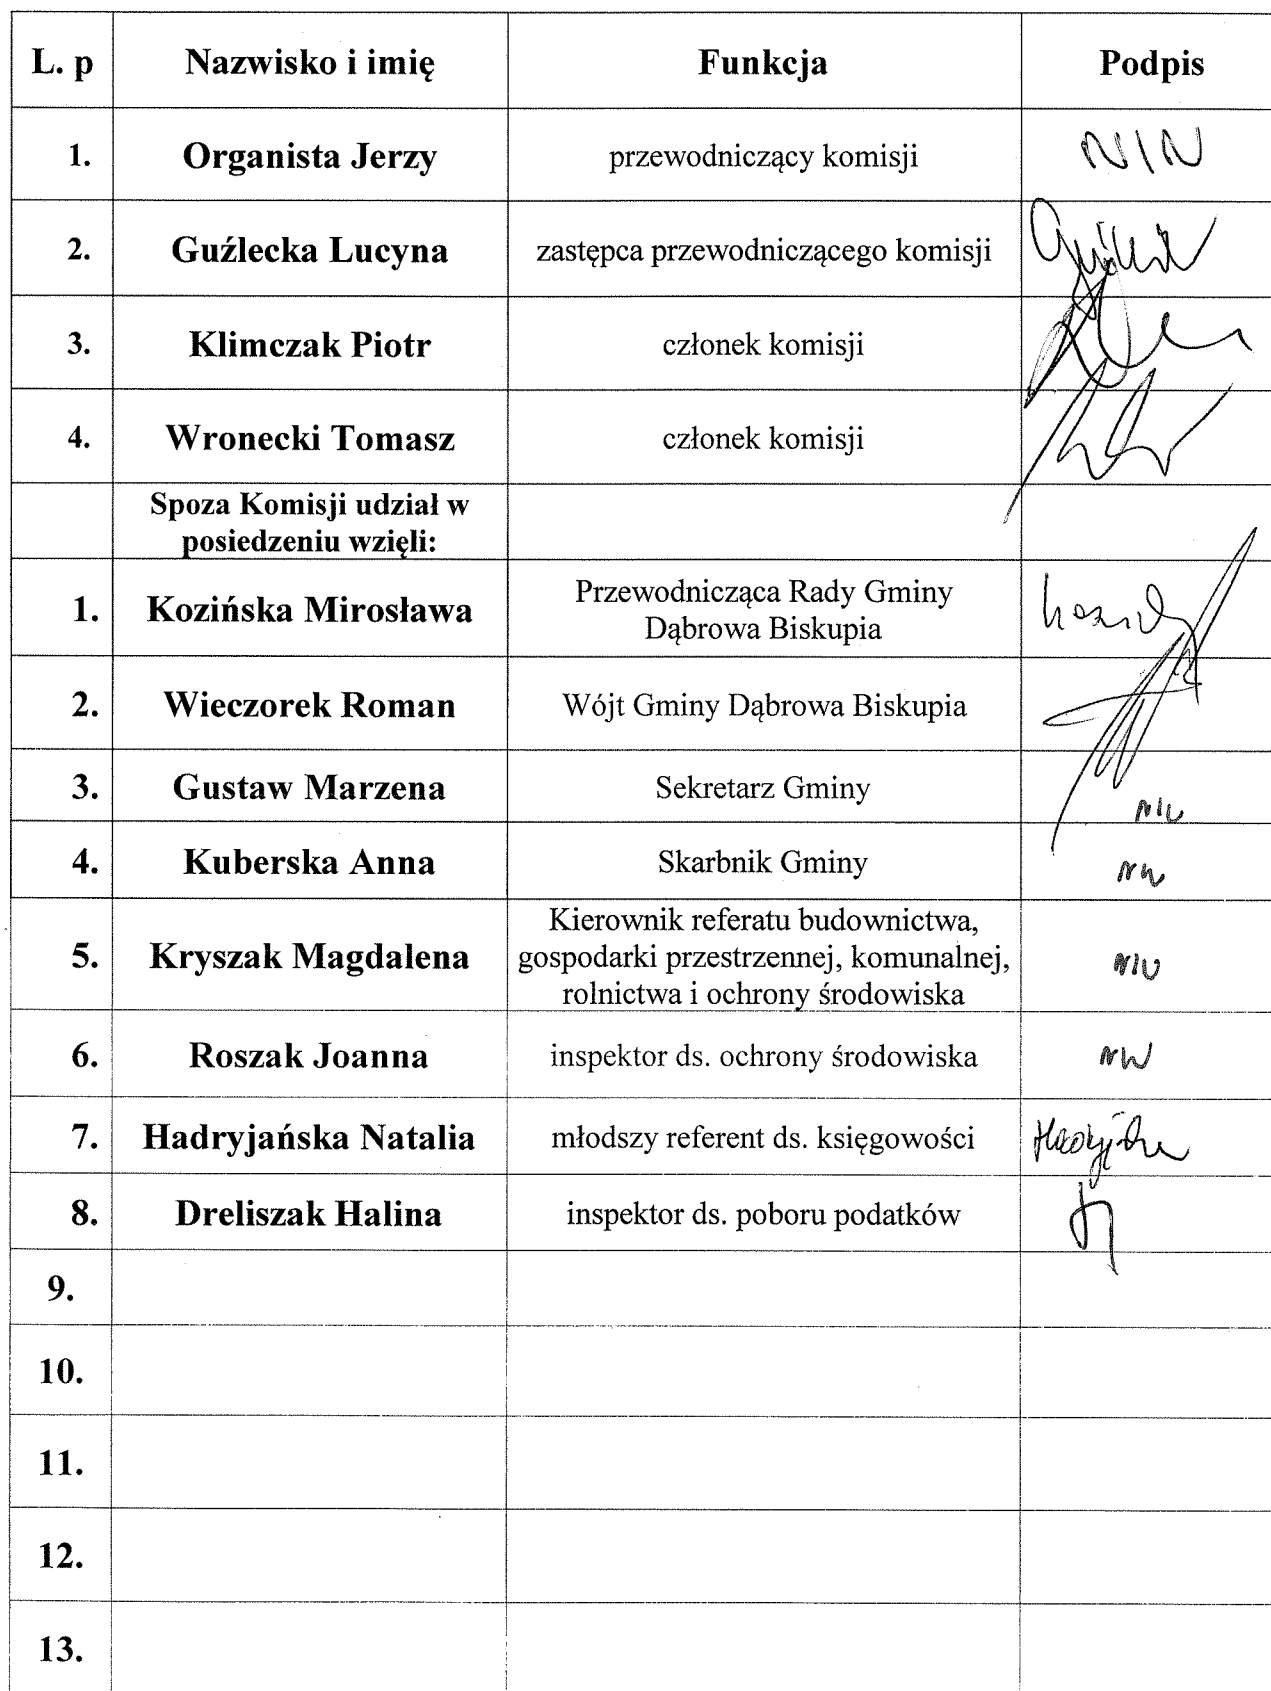 L. p Nazwisko i imię Funkcja Podpis
1. Organista Jerzy przewodniczący komisji
2. Guźlecka Lucyna zastępca przewodniczącego komisji
3. Klimczak Piotr członek komisji
4. Wronecki Tomasz członek komisji
Spoza Komisji udział w
posiedzeniu wzięli:
1. Kozińska Mirosława Przewodnicząca Rady Gminy
Dąbrowa Biskupia
2. Wieczorek Roman Wójt Gminy Dąbrowa Biskupia
3. Gustaw Marzena Sekretarz Gminy
4. Kuberska Anna Skarbnik Gminy
5. Kryszak Magdalena Kierownik referatu budownictwa,
gospodarki przestrzennej, komunalnej,
rolnictwa i ochrony środowiska
6. Roszak Joanna inspektor ds. ochrony środowiska
7. Hadryjańska Natalia młodszy referent ds. księgowości
8. Dreliszak Halina inspektor ds. poboru podatków
9.
10.
11.
12.
13.